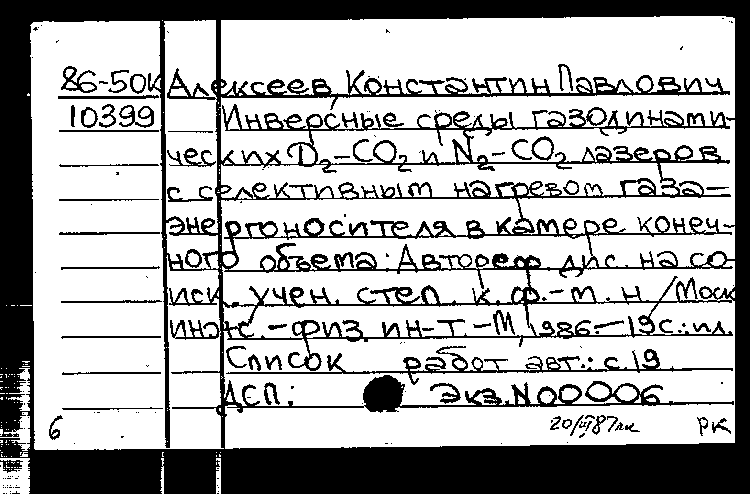 86-50к Алексеев, Константин Павлович
10399 Инверсные среды газодинами-
ческих D2-CO2 и N2-CO2 лазеров
с селективным нагревом газа-
энергоносителя в камере конеч-
ного объема: Автореф. дис. на со-
иск. учен. степ. к. ф.-м. н / Моск
инж.-физ. ин-т.-М, 1986.-19с.: ил.
Список работ авт.: с.19
ДСП: Экз. N 00006.
6 20/VI87 рк